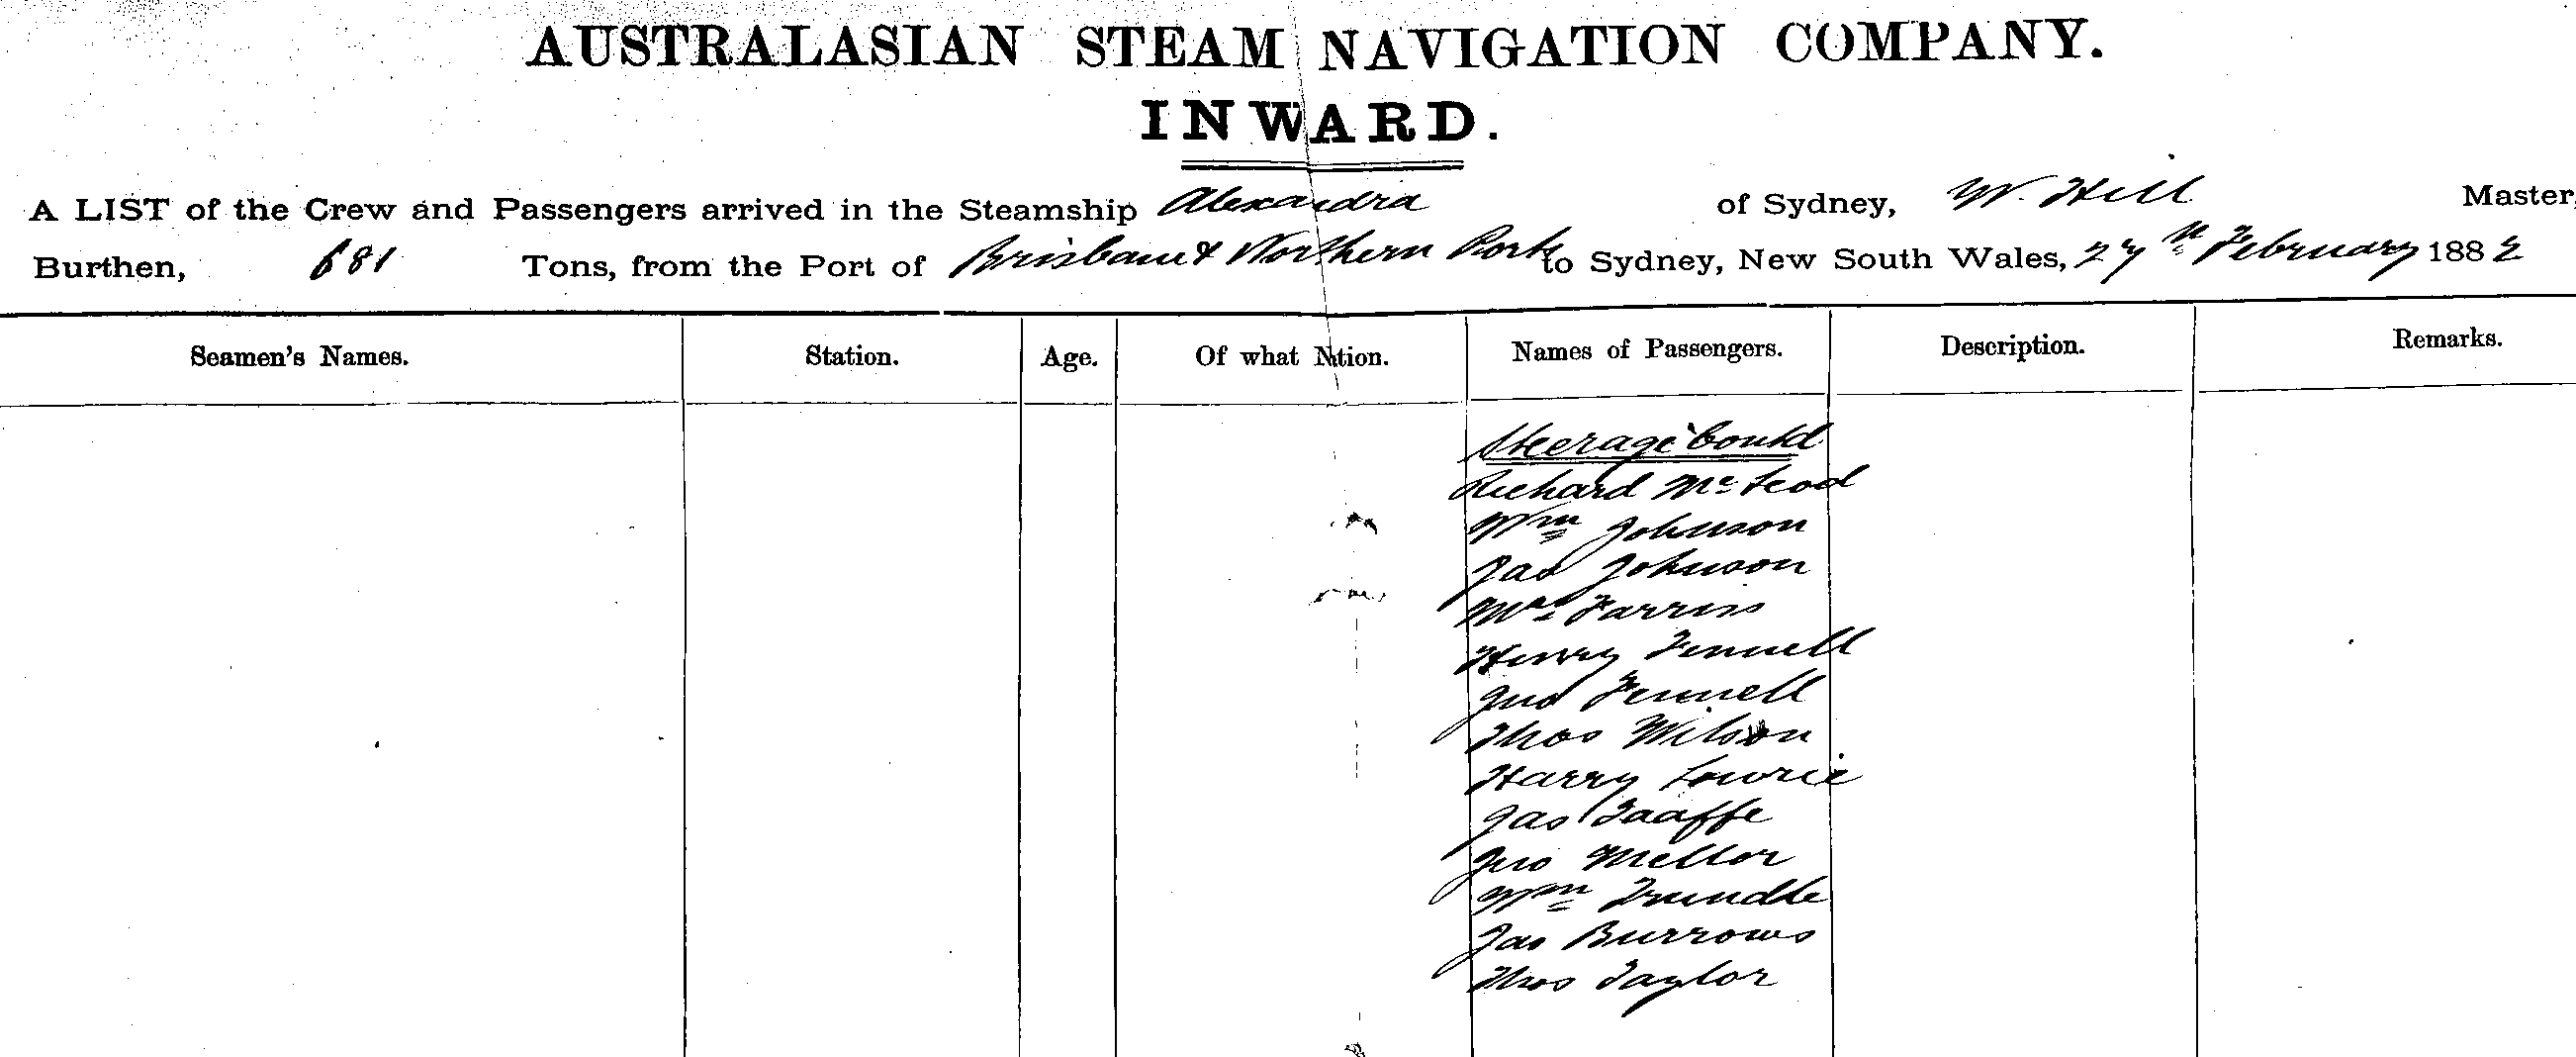 AUSTRALASIAN STEAM NAVIGATION COMPANY.
INWARD.
A LIST of the Crew and Passengers arrived in the Steamship Alexandra of Sydney, W. Hill Master,
Burthen, 681 Tons, from the Port of Brisbane & Northern Ports to Sydney, New South Wales, 27th February 1882
Seamen's Names. Station. Age. Of what Nation. Names of Passengers. Description. Remarks.
Steerage Contd
Richard McLeod
Wm Johnson
Jas Johnson
Mrs Farriss
Henry Fennell
Jno Fennell
Thos Wilson
Harry Lowrie
Jas Taaffe
Jno Mellor
Wm Trundle
Jas Burrows
Thos Taylor